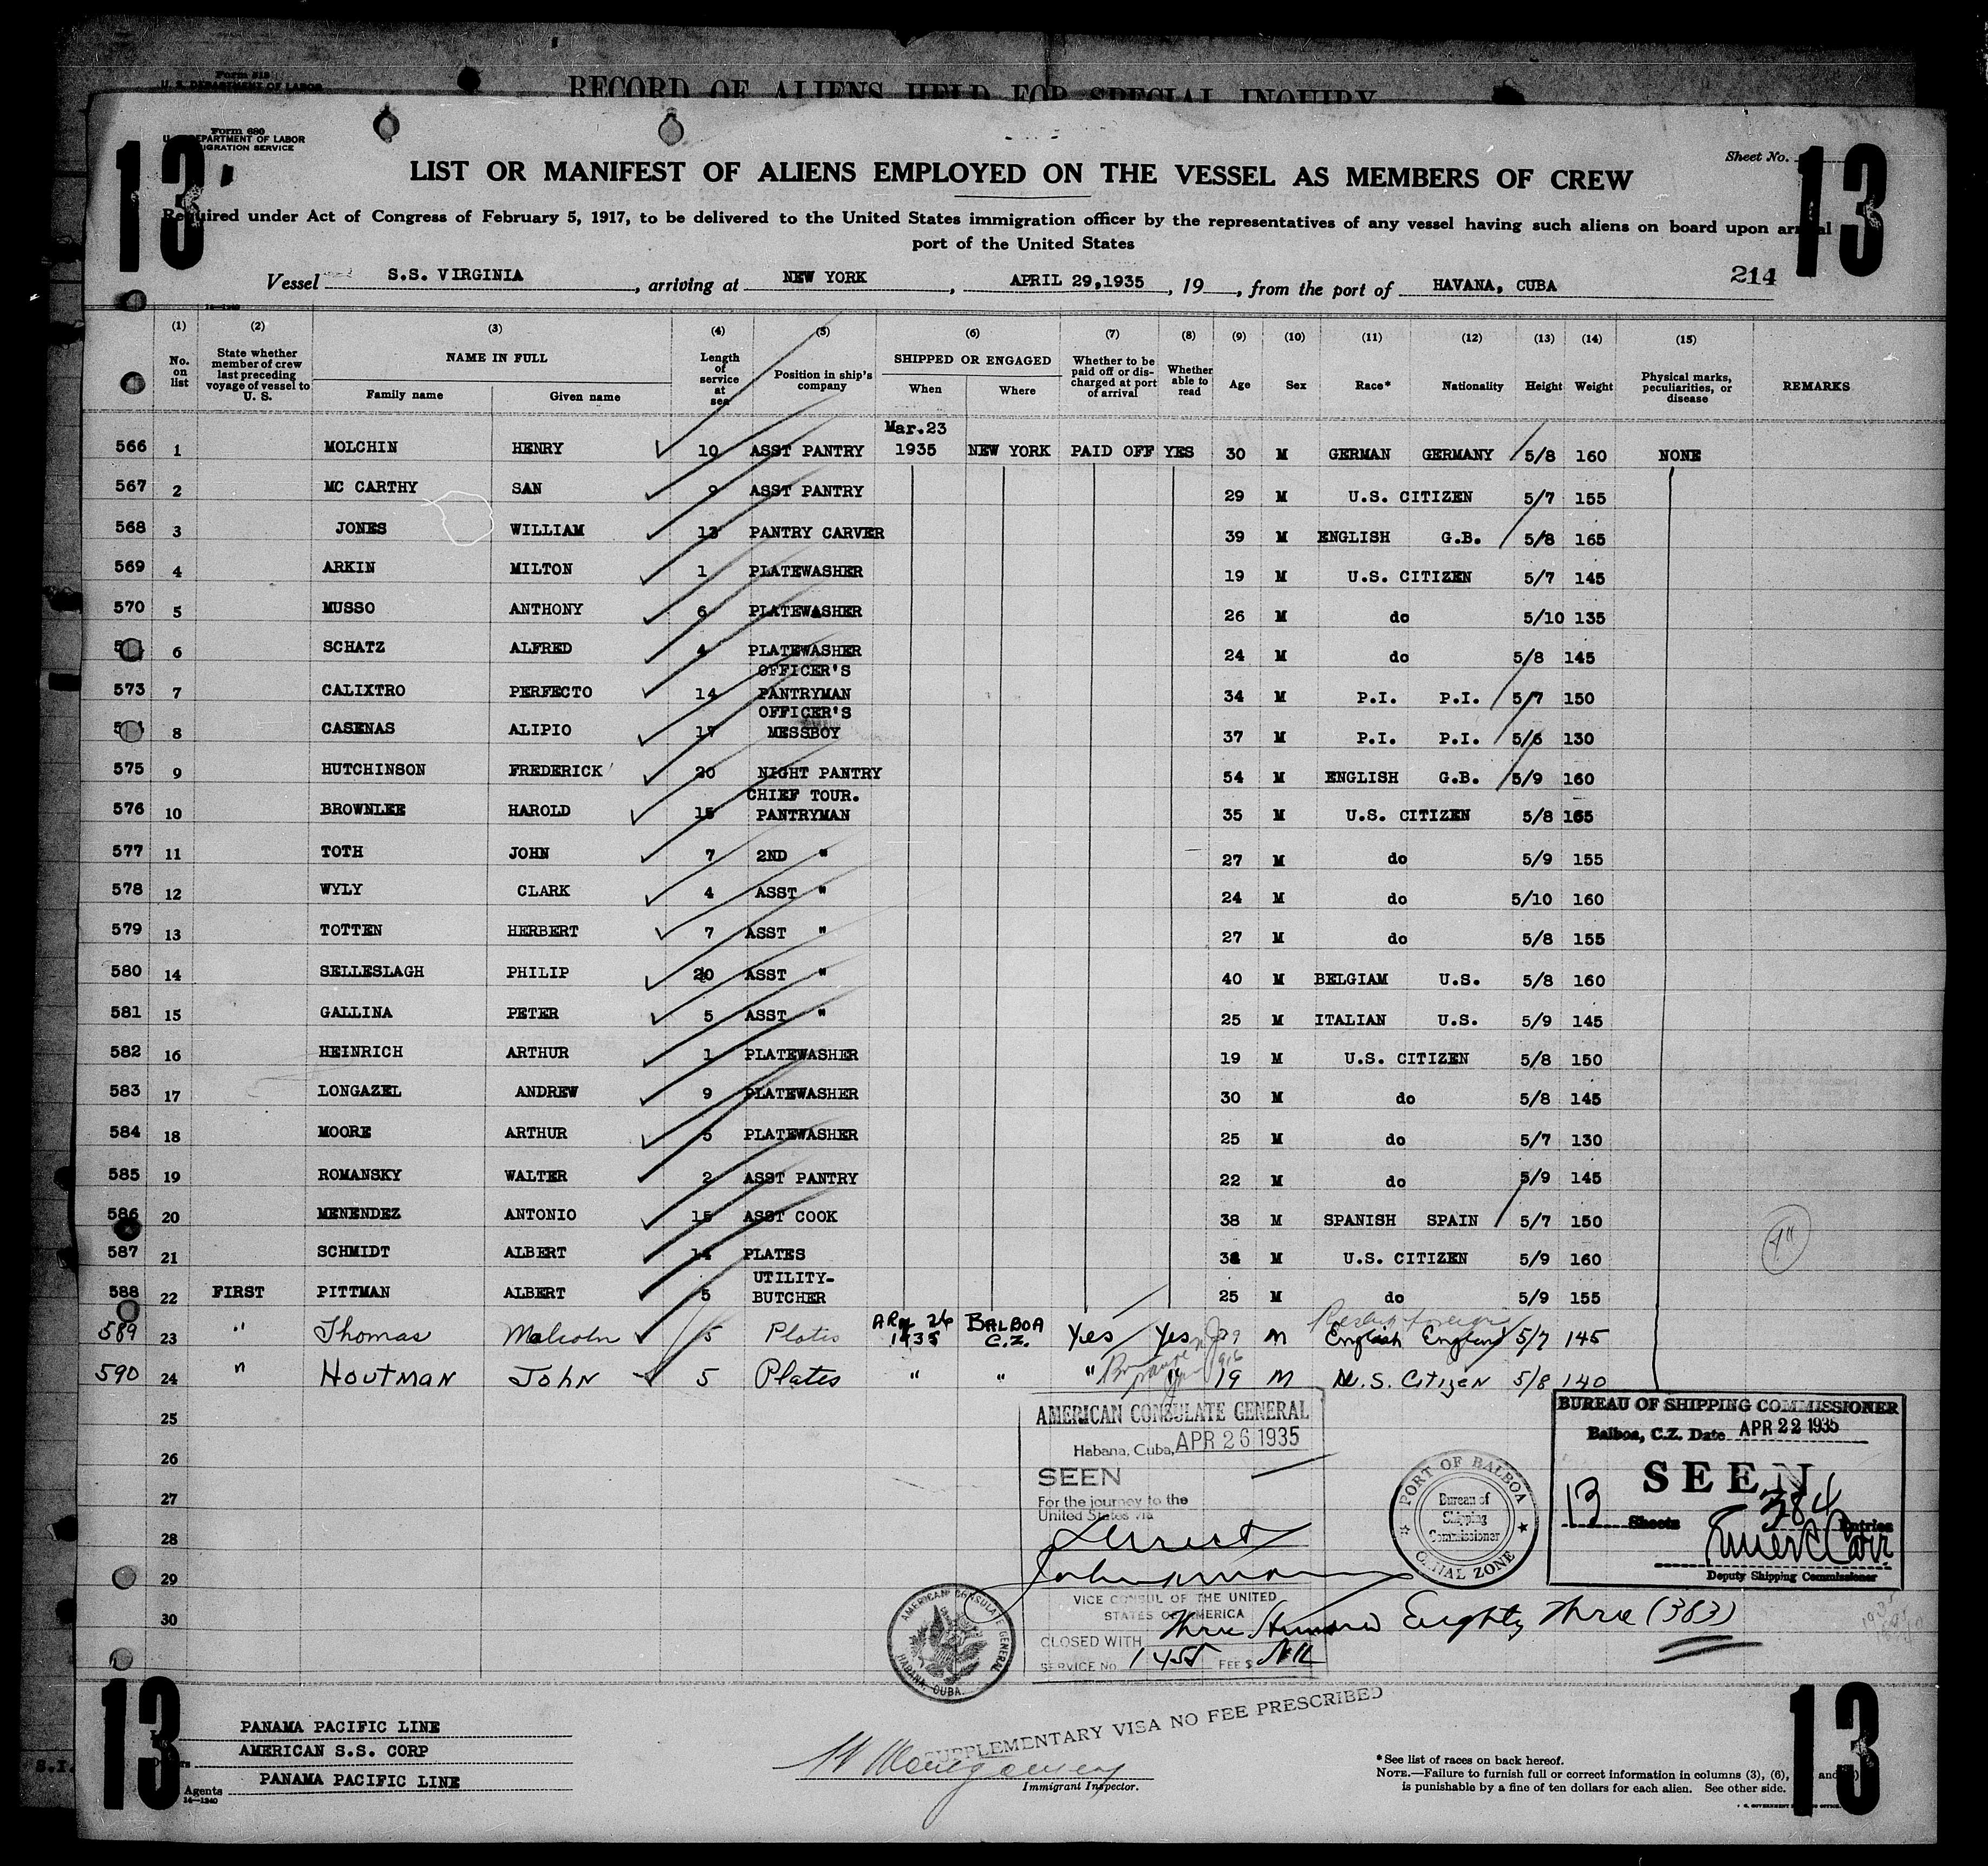 Form 519
U. S. DEPARTMENT OF LABOR
RECORD OF ALIENS HELD FOR SPECIAL INQUIRY
Form 680
U. DEPARTMENT OF LABOR
IGRATION SERVICE
13 13
Sheet No.
LIST OR MANIFEST OF ALIENS EMPLOYED ON THE VESSEL AS MEMBERS OF CREW
Required under Act of Congress of February 5, 1917, to be delivered to the United States immigration officer by the representatives of any vessel having such aliens on board upon arrival
port of the United States
214
Vessel S.S. VIRGINIA, arriving at NEW YORK, APRIL 29,1935, 19, from the port of HAVANA, CUBA
14-1240
(1) (2) (3) (4) (5) (6) (7) (8) (9) (10) (11) (12) (13) (14) (15)
No. on list State whether member of crew last preceding voyage of vessel to U. S. NAME IN FULL Family name Given name Length of service at sea Position in ship's company SHIPPED OR ENGAGED When Where Whether to be paid off or discharged at port of arrival Whether able to read Age Sex Race* Nationality Height Weight Physical marks, peculiarities, or disease REMARKS
566 1 MOLCHIN HENRY 10 ASST PANTRY Mar.23 1935 NEW YORK PAID OFF YES 30 M GERMAN GERMANY 5/8 160 NONE
567 2 MC CARTHY SAN 9 ASST PANTRY 29 M U.S. CITIZEN 5/7 155
568 3 JONES WILLIAM 13 PANTRY CARVER 39 M ENGLISH G.B. 5/8 165
569 4 ARKIN MILTON 1 PLATEWASHER 19 M U.S. CITIZEN 5/7 145
570 5 MUSSO ANTHONY 6 PLATEWASHER 26 M do 5/10 135
6 SCHATZ ALFRED 4 PLATEWASHER 24 M do 5/8 145
573 7 CALIXTRO PERFECTO 14 OFFICER'S PANTRYMAN 34 M P.I. P.I. 5/7 150
8 CASENAS ALIPIO 17 OFFICER'S MESSBOY 37 M P.I. P.I. 5/6 130
575 9 HUTCHINSON FREDERICK 20 NIGHT PANTRY 54 M ENGLISH G.B. 5/9 160
576 10 BROWNLEE HAROLD 15 CHIEF TOUR. PANTRYMAN 35 M U.S. CITIZEN 5/8 165
577 11 TOTH JOHN 7 2ND " 27 M do 5/9 155
578 12 WYLY CLARK 4 ASST " 24 M do 5/10 160
579 13 TOTTEN HERBERT 7 ASST " 27 M do 5/8 155
580 14 SELLESLAGH PHILIP 20 ASST " 40 M BELGIAM U.S. 5/8 160
581 15 GALLINA PETER 5 ASST " 25 M ITALIAN U.S. 5/9 145
582 16 HEINRICH ARTHUR 1 PLATEWASHER 19 M U.S. CITIZEN 5/8 150
583 17 LONGAZEL ANDREW 9 PLATEWASHER 30 M do 5/8 145
584 18 MOORE ARTHUR 5 PLATEWASHER 25 M do 5/7 130
585 19 ROMANSKY WALTER 2 ASST PANTRY 22 M do 5/9 145
586 20 MENENDEZ ANTONIO 15 ASST COOK 38 M SPANISH SPAIN 5/7 150
587 21 SCHMIDT ALBERT 14 PLATES U.S. CITIZEN M 5/9 160
588 22 FIRST PITTMAN ALBERT 5 UTILITY-BUTCHER 25 M do 5/9 155
589 23 " Thomas Malcolm 5 Plates 1935 BALBOA C.Z. Yes Yes M English England 5/7 145
590 24 " Houtman John 5 Plates " " " " 19 M U.S. Citizen 5/8 140
25
26
27
28
29
30
AMERICAN CONSULATE GENERAL
Habana, Cuba, APR 26 1935
SEEN
For the journey to the
United States via
Direct
VICE CONSUL OF THE UNITED
STATES OF AMERICA
CLOSED WITH Three Hundred Eighty Three (383)
SERVICE No. FEE $ Nil
AMERICAN CONSULATE GENERAL HABANA, CUBA.
PORT OF BALBOA
Bureau of
Shipping
Commissioner
CANAL ZONE
BUREAU OF SHIPPING COMMISSIONER
Balboa, C.Z. Date APR 22 1935
SEEN
13 Sheets 384 Entries
Deputy Shipping Commissioner
SUPPLEMENTARY VISA NO FEE PRESCRIBED
13 13
PANAMA PACIFIC LINE
AMERICAN S.S. CORP
Agents PANAMA PACIFIC LINE
14-1240
Immigrant Inspector.
*See list of races on back hereof.
NOTE.—Failure to furnish full or correct information in columns (3), (6), and
is punishable by a fine of ten dollars for each alien. See other side.
S.I.